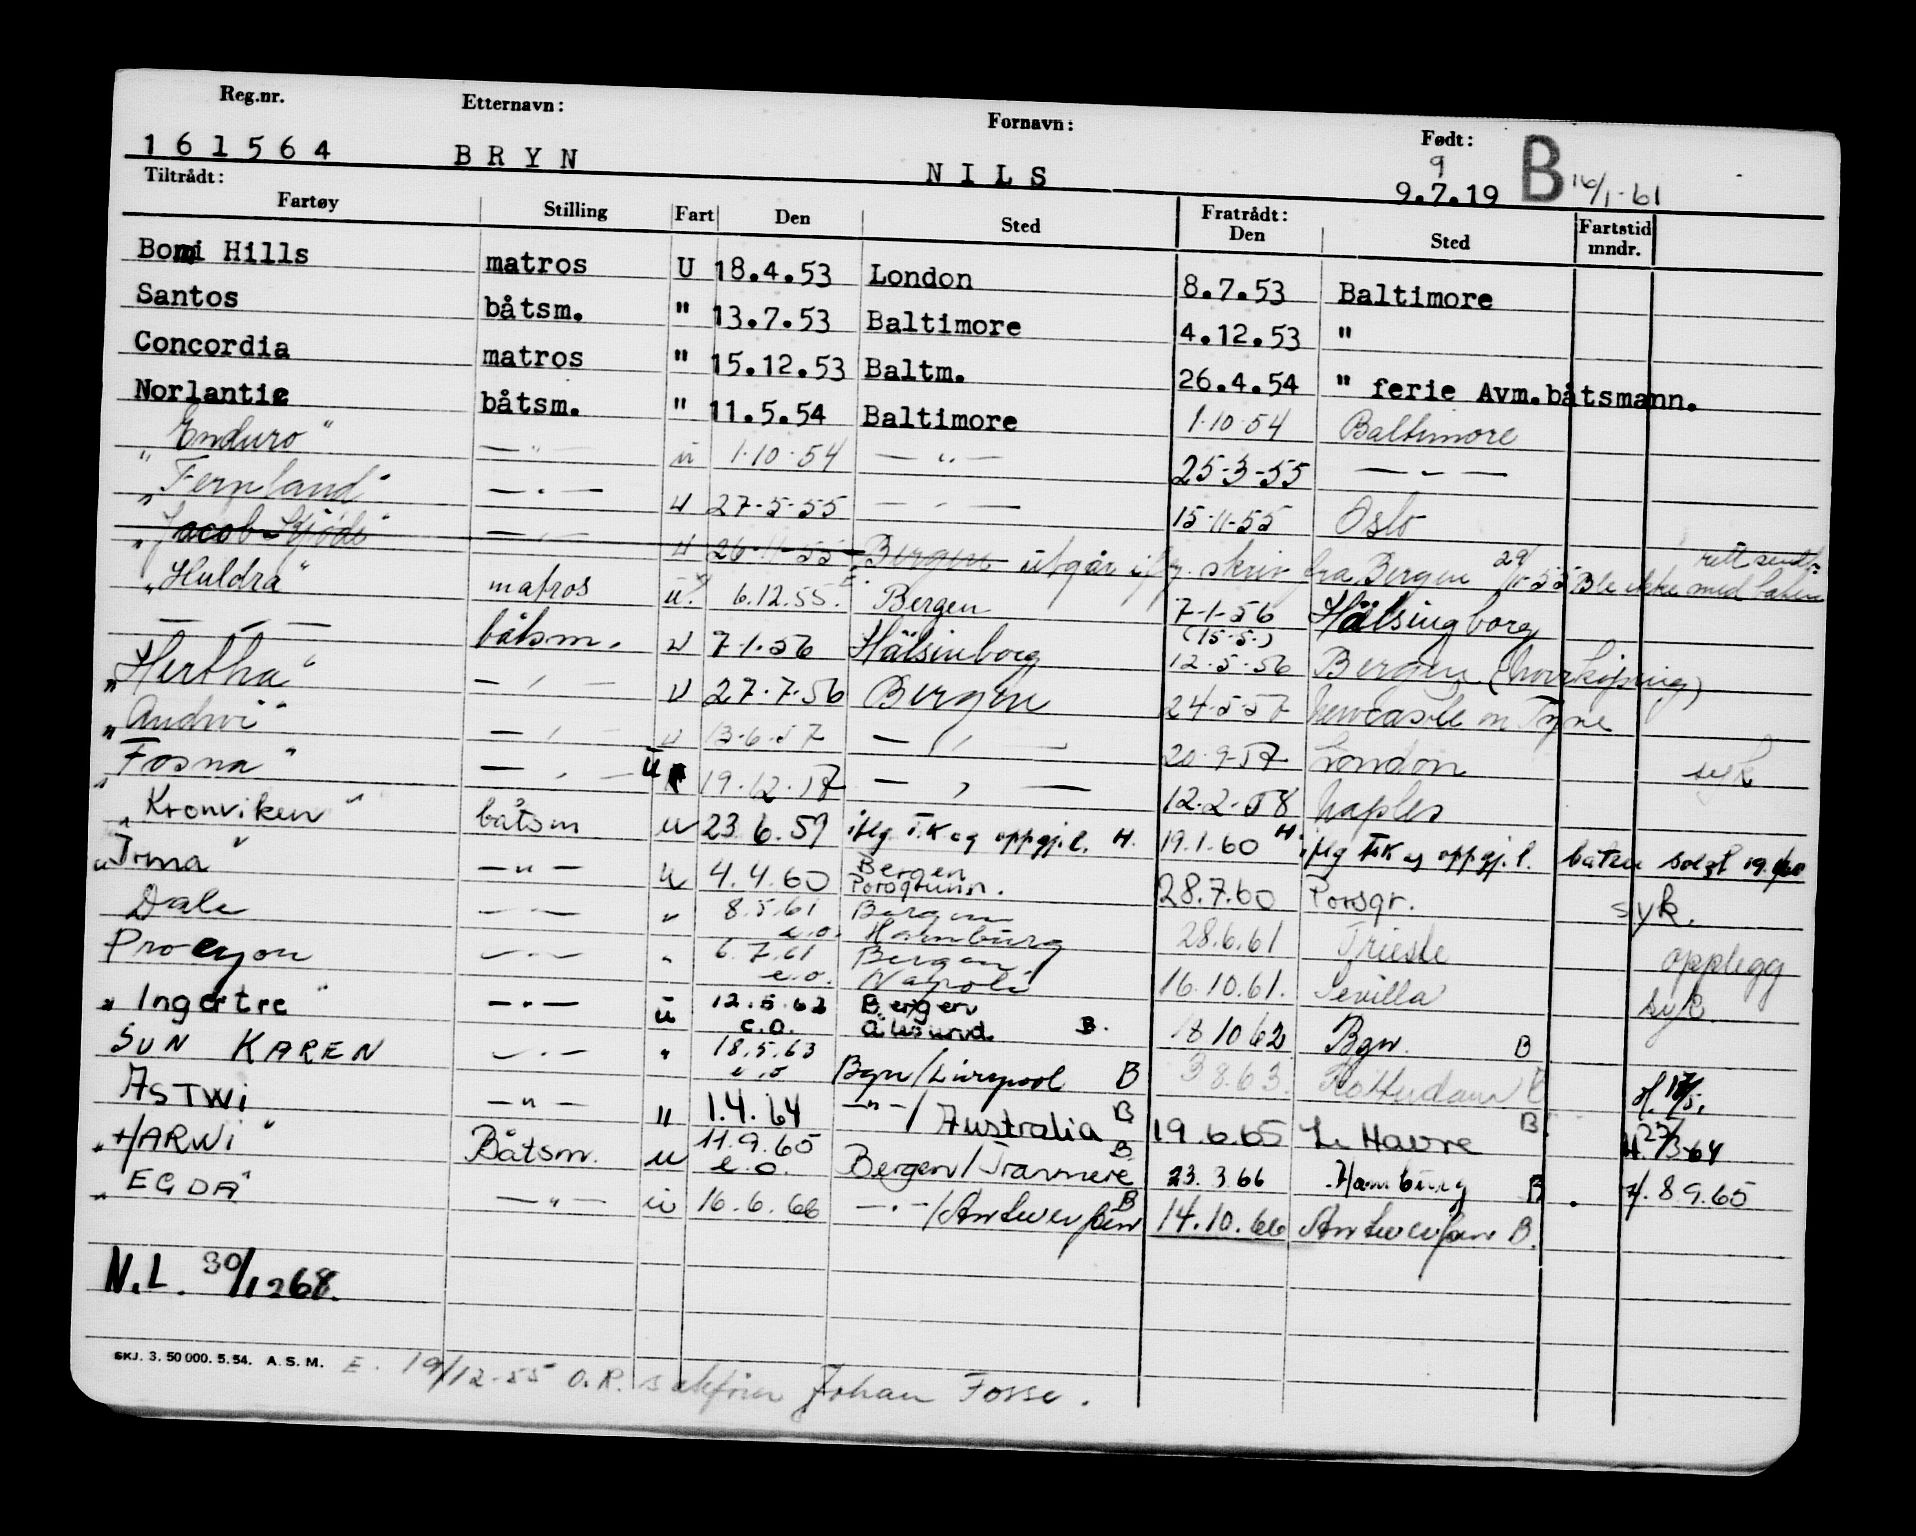 Reg.nr. Etternavn: Fornavn: Født:
161564 BRYN NILS 9.7.19 9 B 16/1-61
Tiltrådt: Fratrådt:
Fartøy Stilling Fart Den Sted Den Sted Fartstid mndr.
Bomi Hills matros U 18.4.53 London 8.7.53 Baltimore
Santos båtsm. " 13.7.53 Baltimore 4.12.53 "
Concordia matros " 15.12.53 Baltm. 26.4.54 " ferie Avm.båtsmann.
Norlantic båtsm. " 11.5.54 Baltimore 1.10.54 Baltimore
Enduro" — " — u 1.10.54 — " — 25-3-55 — " —
"Fernland" — " — u 27-5-55 — " — 15-11-55 Oslo
"Jacob Kjøde" — " — u 26-11-55 Bergen utgår ifg. skriv fra Bergen 29/11-55 Ble ikke med båten
"Huldra" matros u. 6.12.55. Bergen 7-1-56 Hälsingborg
— " — båtsm. u 7-1-56 Hälsinborg (15-5-) 12-5-56 Bergen (Norrköping)
"Hertha" — " — u 27-7-56 Bergen 24-5-57 Newcastle on Tyne
"Andwi" — " — u 13-6-57 — " — 20-9-57 London syk
"Fosna" — " — u 19.12.57 — " — 12-2-58 Naples
"Kronviken" båtsm u 23.6.59 iflg. T.K og oppgj.l. H. 19.1.60 H. iflg T.K og oppgj.l. båten solgt
"Irma" — " — u 4.4.60 Bergen Porsgrunn. 28.7.60 Porsgr. syk.
Dale — " — " 8.5.61 e.o. Bergen Hamburg 28.6.61 Trieste opplegg
Procyon — " — " 6.7.61 e.o. Bergen Napoli 16.10.61. Sevilla syk
"Ingertre" — " — u 12.5.62 e.o. Bergen Ålesund B. 18 10 62 Bgn. B
SUN KAREN — " — " 18.5.63 e.o Bgn/Liverpool B 3 8.63. Rotterdam B H. 17/5.
ASTWI — " — " 1.4.64 — " — / Australia B 19.6.65 Le Havre B. H. 23/3-64
"HARWI" Båtsm. u 11.9.65 e.o. Bergen/Tranmere B 23.3.66 Hamburg B. H. 8 9.65
"EGDA" — " — u 16.6.66 — " — /Antwerpen B 14.10.66 Antwerpen B.
N.L. 30/1268.
SKJ. 3. 50 000. 5. 54. A. S. M. E. 19/12-55 O.R. sakfører Johan Fosse.